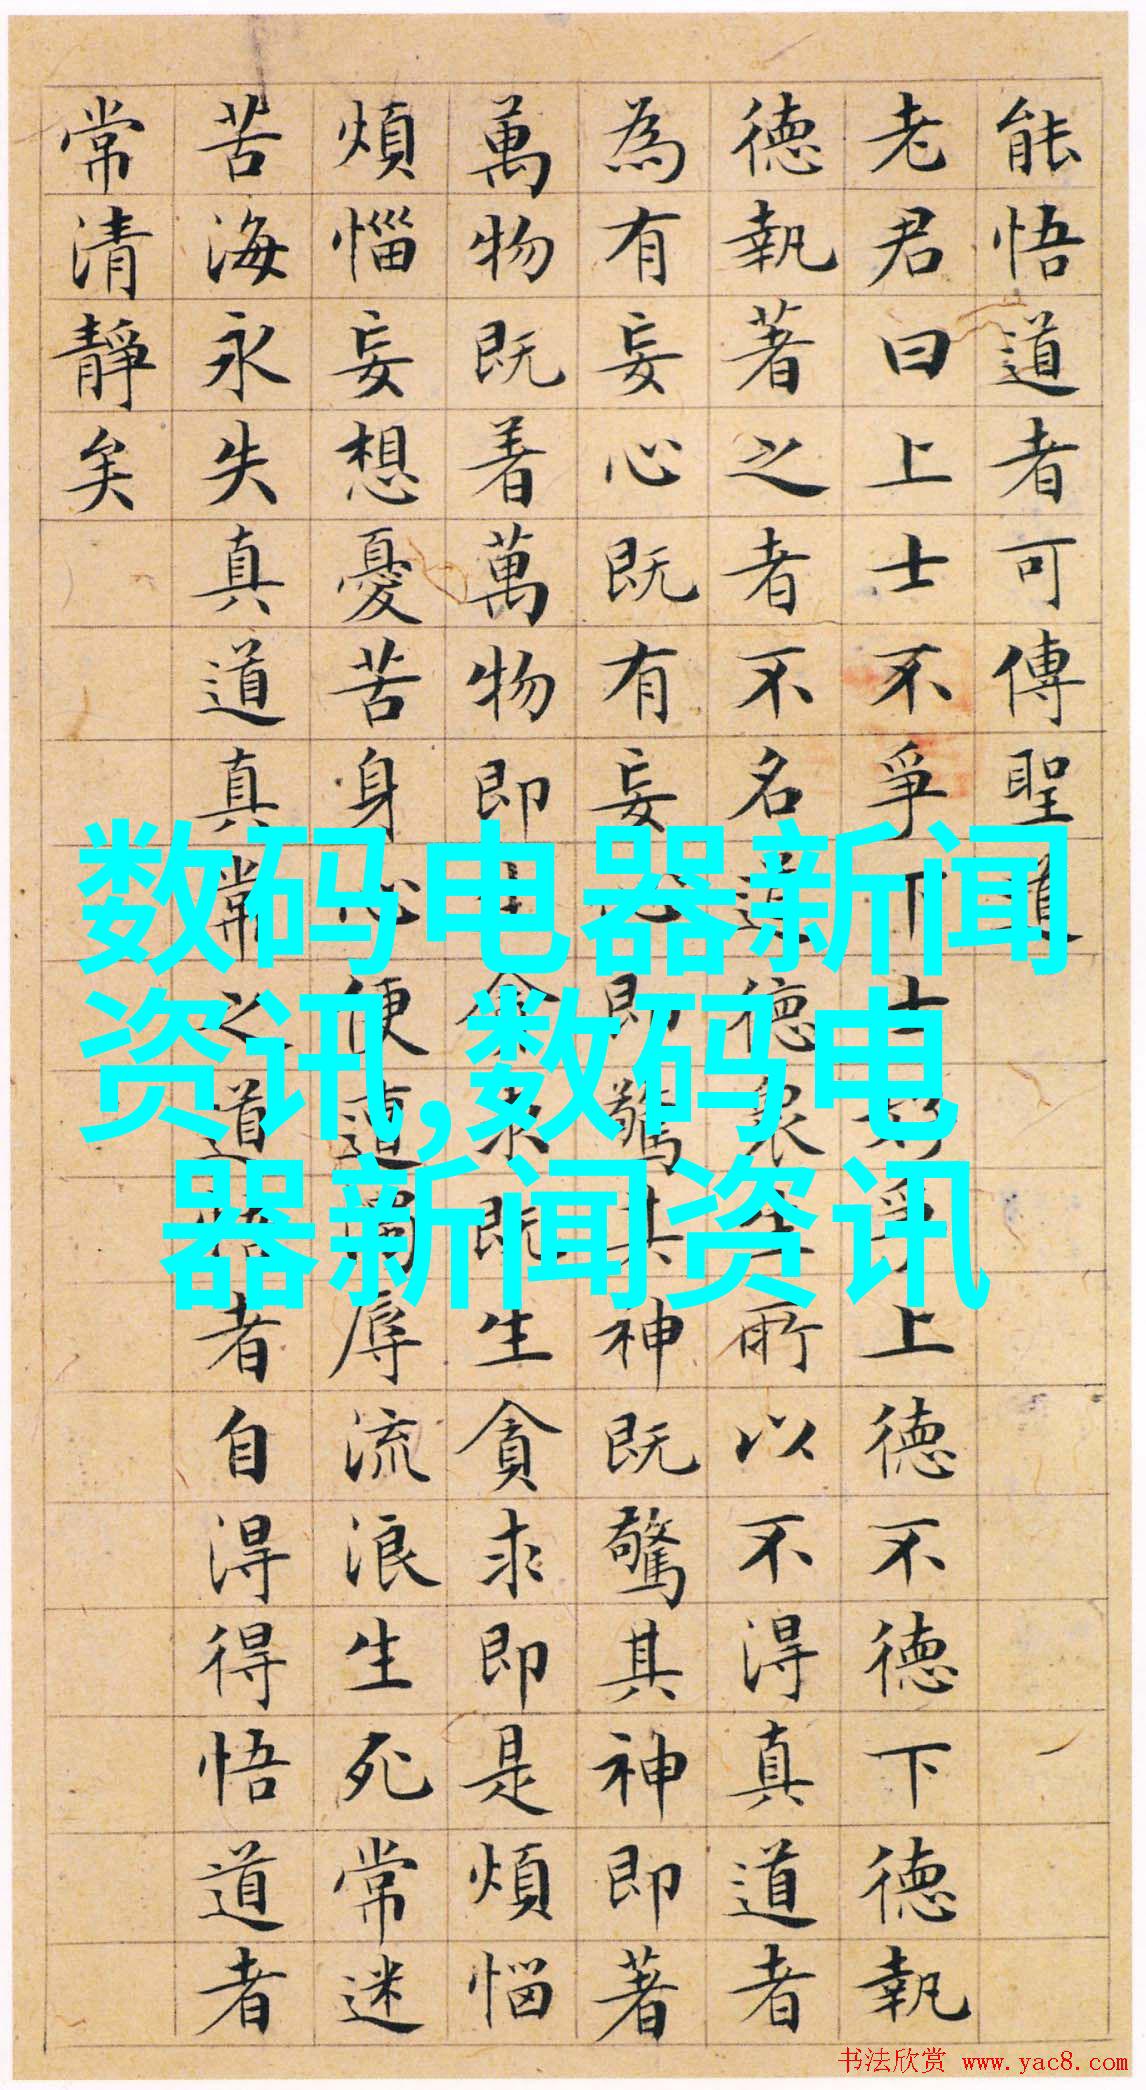 能悟道者可傳聖道
老君曰上士不爭下士好爭上德不德下德執
德執著之者不名道德衆生所以不得真道者
為有妄心既有妄心即驚其神既驚其神即著
萬物既着萬物即生貪求既生貪求即是煩惱
煩惱妄想憂苦身心便遭濁辱流浪生死常迷
苦海永失真道真常之道悟者自得得悟道者
常清靜矣
数码电器新闻
资讯,数码电
器新闻资讯
书法欣赏 www.yac8.com